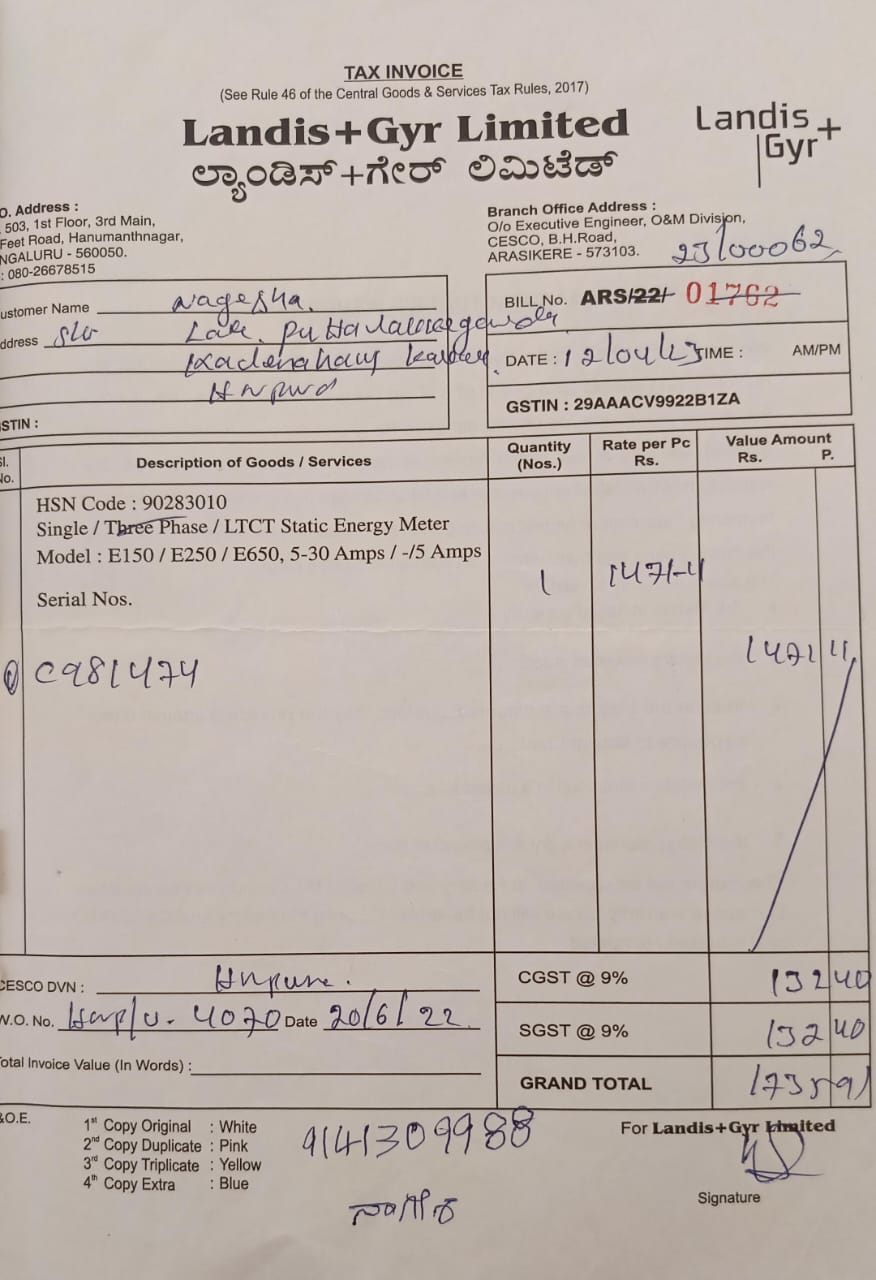 TAX INVOICE
(See Rule 46 of the Central Goods & Services Tax Rules, 2017)
Landis+Gyr Limited
ಲ್ಯಾಂಡಿಸ್+ಗೇರ್ ಲಿಮಿಟೆಡ್
Landis+
Gyr
O. Address :
503, 1st Floor, 3rd Main,
Feet Road, Hanumanthnagar,
NGALURU - 560050.
: 080-26678515
Branch Office Address :
O/o Executive Engineer, O&M Division,
CESCO, B.H.Road,
ARASIKERE - 573103.
23100062
ustomer Name Nagesha.
ddress S/o Late.
STIN :
BILL No. ARS/22/- 01762
DATE : 12/04/23 TIME : AM/PM
GSTIN : 29AAACV9922B1ZA
Sl. No. Description of Goods / Services Quantity (Nos.) Rate per Pc Rs. Value Amount Rs. P.
HSN Code : 90283010
Single / Three Phase / LTCT Static Energy Meter
Model : E150 / E250 / E650, 5-30 Amps / -/5 Amps
1 1471-11
Serial Nos.
1471 11
C981474
CESCO DVN :
CGST @ 9% 132 40
W.O. No. 4070 Date 20/6/22
SGST @ 9% 132 40
otal Invoice Value (In Words) :
GRAND TOTAL 1735 91
&O.E.
1st Copy Original : White
2nd Copy Duplicate : Pink
3rd Copy Triplicate : Yellow
4th Copy Extra : Blue
9141309988
For Landis+Gyr Limited
Signature